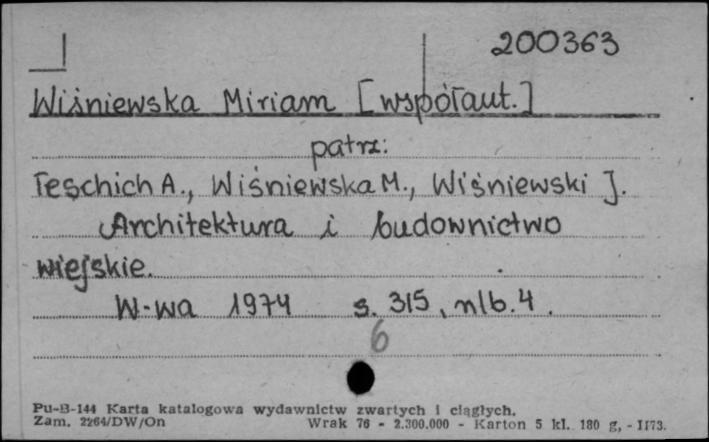 200363
Wiśniewska Miriam [współaut.]
patrz:
Teschich A., Wiśniewska M., Wiśniewski J.
Architektura i budownictwo
wiejskie.
W-wa 1974 s. 315, nlb. 4.
6
Pu-B-144 Karta katalogowa wydawnictw zwartych i ciągłych.
Zam. 2264/DW/On Wrak 76 - 2.300.000 - Karton 5 kl. 180 g, - II73.